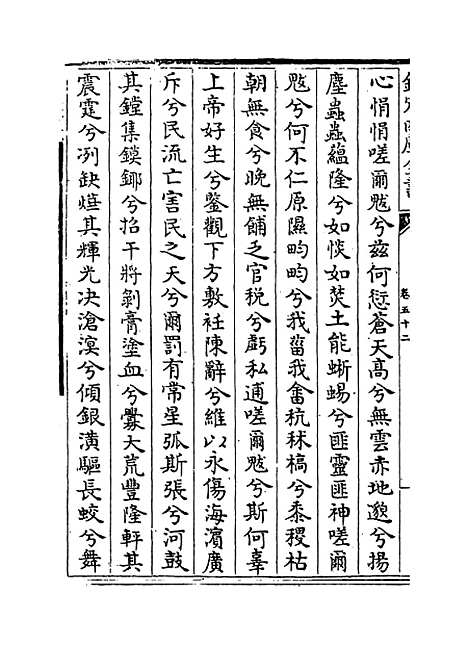 卷五十二
心悁悁嗟爾魃兮兹何愆蒼天高兮無雲赤地邈兮揚
塵蟲蟲蘊隆兮如惔如焚土能蜥蜴兮匪靈匪神嗟爾
魃兮何不仁原隰畇畇兮我菑我畬秔秫槁兮黍稷枯
朝無食兮晚無餔乏官税兮虧私逋嗟爾魃兮斯何辜
上帝好生兮鑒觀下方敷衽陳辭兮維以永傷海濵廣
斥兮民流亡害民之天兮爾罰有常星弧斯張兮河鼓
其鏜集鏌鎁兮招干將剝膏塗血兮釁大荒豐隆軒其
震霆兮列缺熺其輝光决滄溟兮傾銀潢驅長蛟兮舞